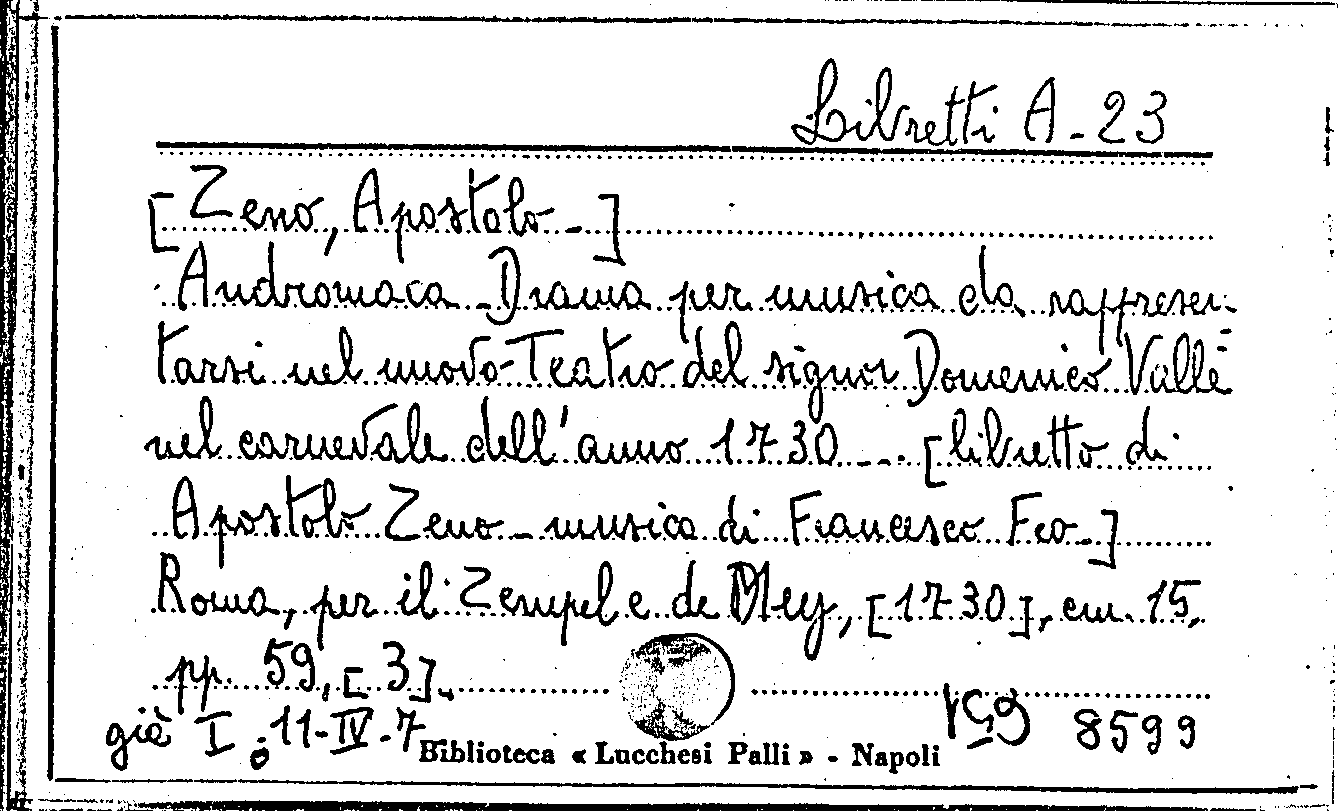 Libretti A-23
[Zeno, Apostolo-]
Andromaca - Drama per musica da rappresen-
tarsi nel nuovo Teatro del signor Domenico Valle
nel carnevale dell'anno 1730 --- [libretto di
Apostolo Zeno - musica di Francesco Feo-]
Roma, per il Zempel e de Mey, [1730], cm. 15,
pp. 59, [3].
già I. 11-IV-7
8599
Biblioteca « Lucchesi Palli » - Napoli